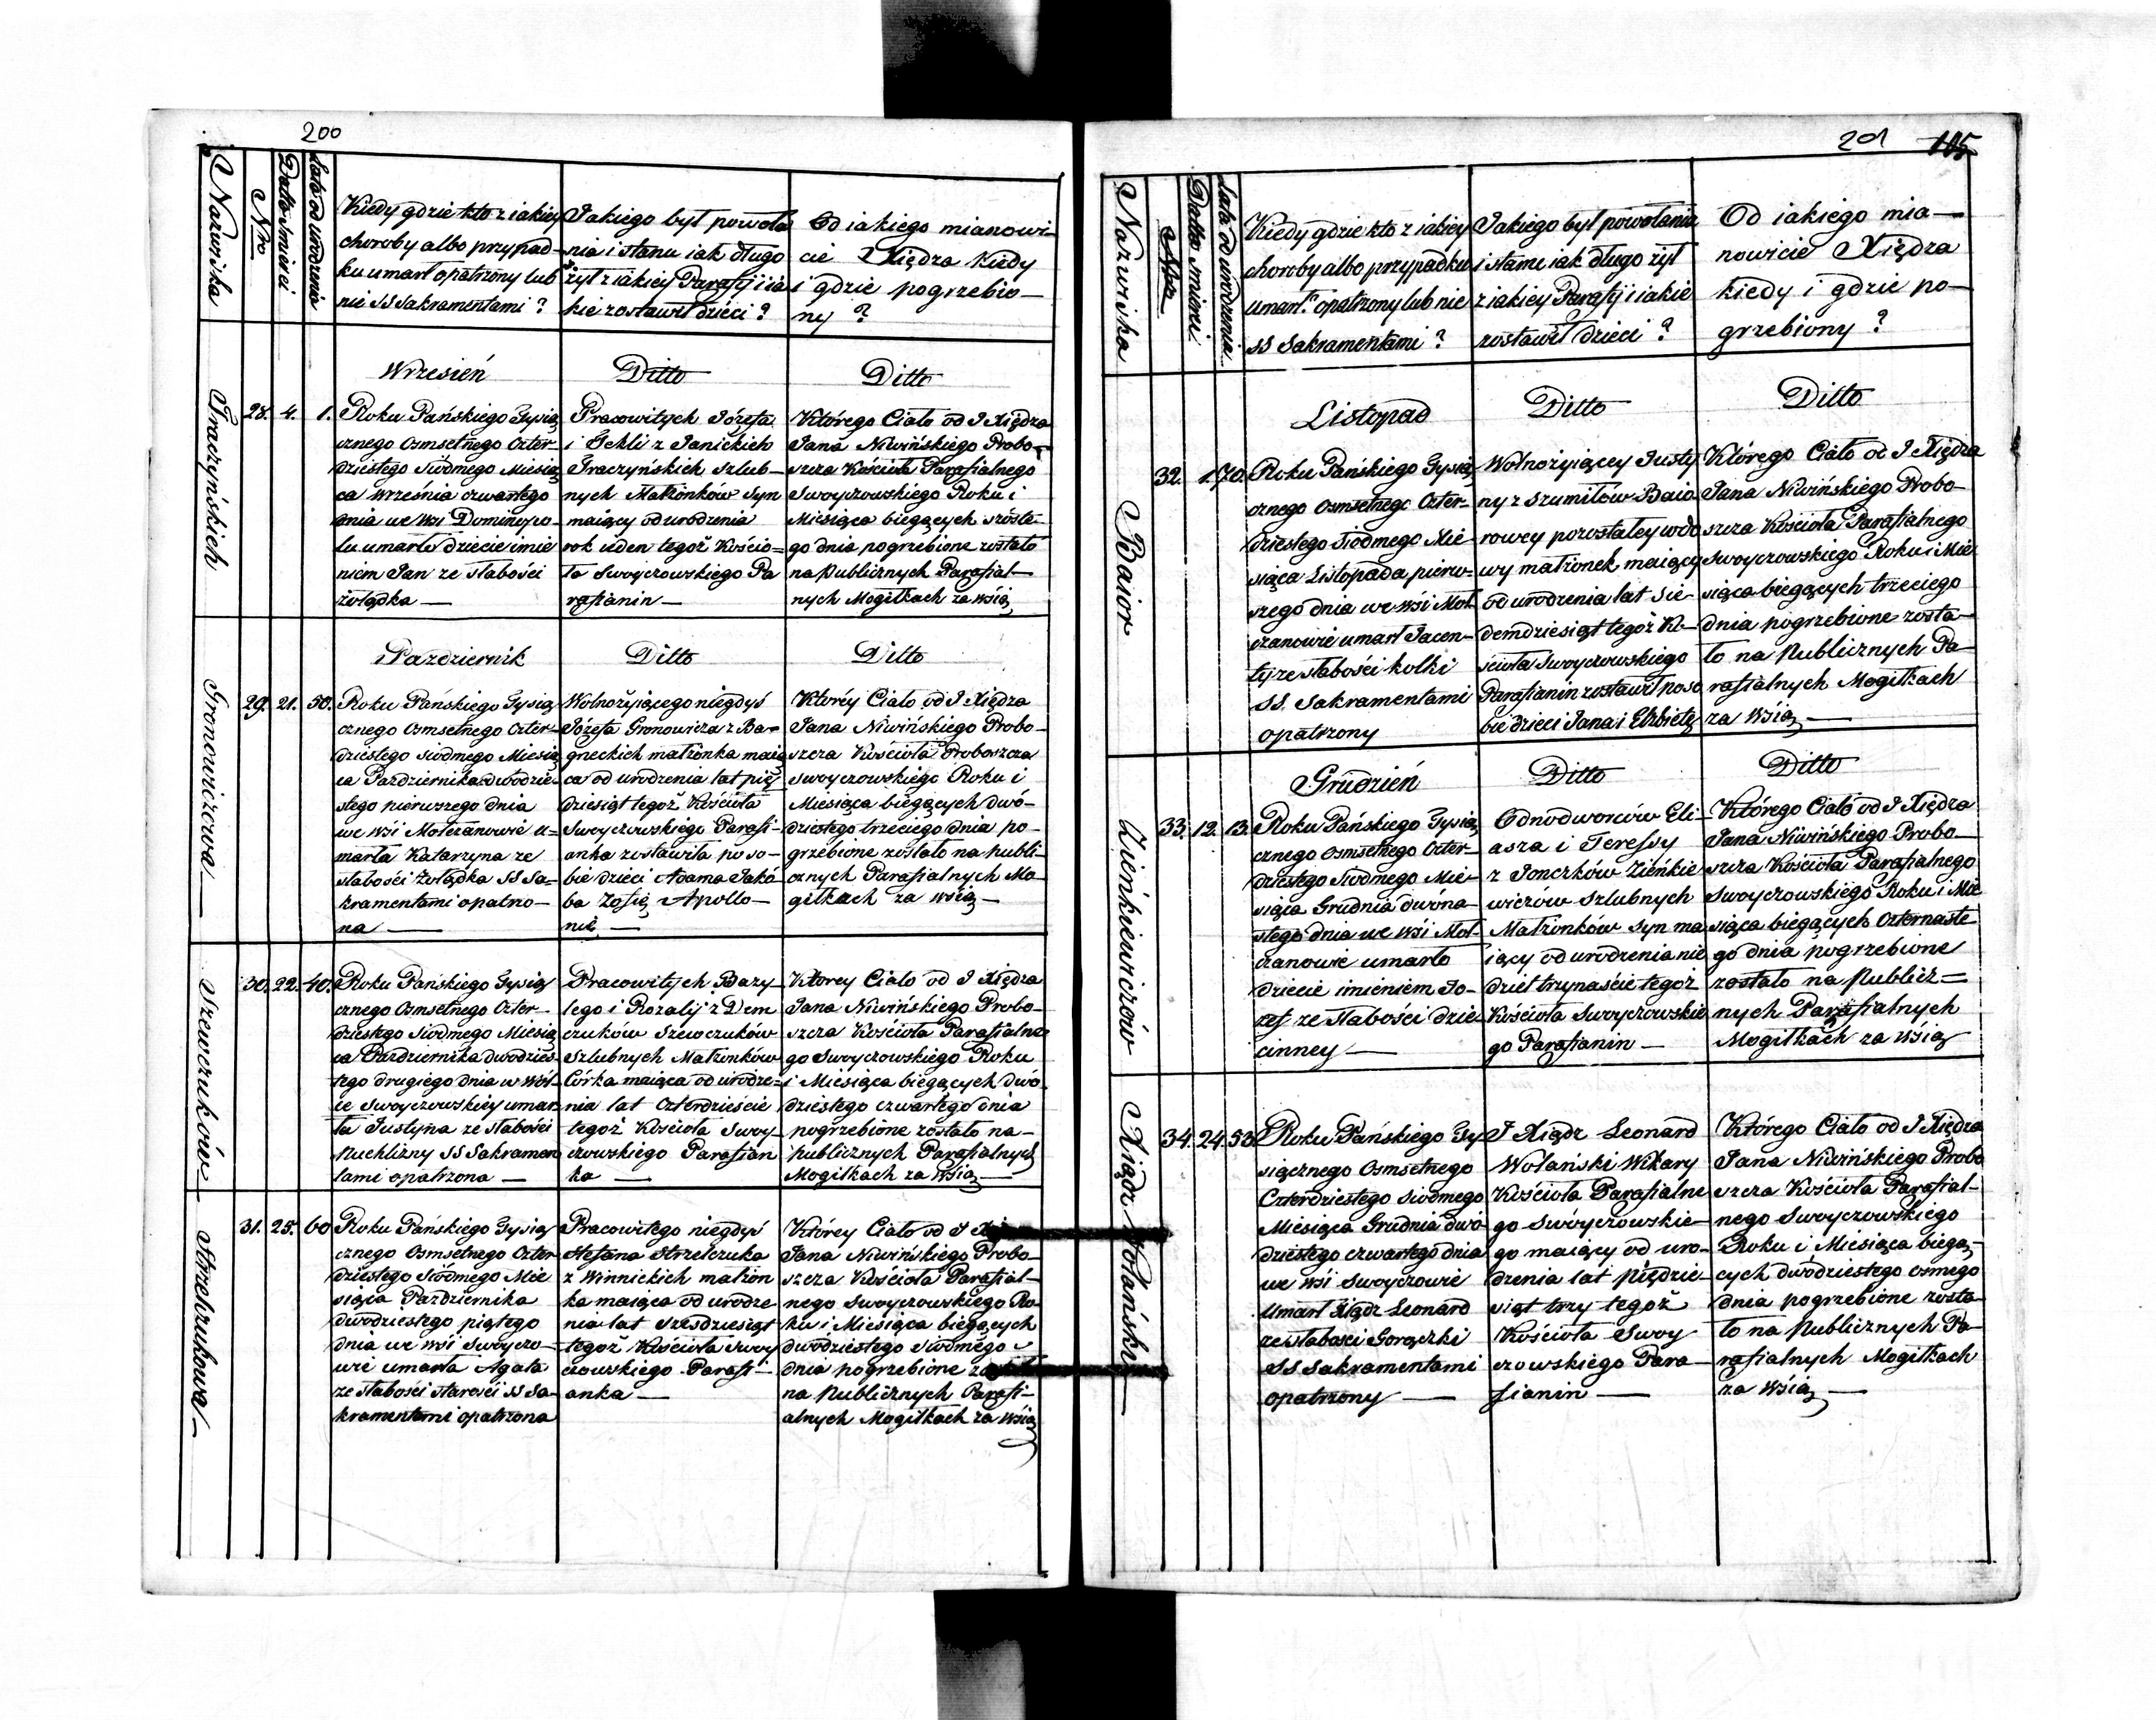 200
Nazwiska
Nro
Datto śmierci
Lata od urodzenia
Kiedy gdzie kto z iakiey
choroby albo przypad-
ku umarł opatrzony lub
nie SS Sakramentami ?
Jakiego był powoła
nia i stanu iak długo
żył z iakiey Parafij i ia
kie zostawił dzieci ?
Od iakiego mianowi-
cie Xiędza kiedy
i gdzie pogrzebio-
ny ?
Graczyńskich
28. 4. 1.
Wrzesień
Roku Pańskiego Tysią
cznego Osmsetnego Czter-
dziestego Siódmego Miesią
ca Września czwartego
dnia we Wsi Dominopo-
lu umarło dziecie imie
niem Jan ze słabości
żołądka —
Ditto
Pracowitych Józefa
i Tekli z Janickich
Graczyńskich szlub-
nych Małżonków syn
maiący od urodzenia
rok ieden tegoż Kościo-
ła Swoyczowskiego Pa
rafianin —
Ditto
Którego Ciało od J Xiędza
Jana Niwińskiego Probo-
szcza Kościoła Parafialnego
Swoyczowskiego Roku i
Miesiąca biegących szósta-
go dnia pogrzebione zostało
na Publicznych Parafial-
nych Mogiłkach za wsią
Gronowiczowa —
29. 21. 50.
Pazdziernik
Roku Pańskiego Tysią
cznego Osmsetnego Czter-
dziestego siódmego Miesią
ca Pazdziernika dwodzie-
stego pierwszego dnia
we wsi Mołczanowie u=
marła Katarzyna ze
słabości żołądka SS Sa=
kramentami opatrzo-
na —
Ditto
Wolnożyiącego niegdyś
Józefa Gronowicza z Ba=
gneckich małżonka maią
ca od urodzenia lat pięć
dziesiąt tegoż Kościoła
Swoyczowskiego Parafi-
anka zostawiła po so-
bie dzieci Adama Jakó
ba Zofię Apollo-
nię —
Ditto
Którey Ciało od J Xiędza
Jana Niwińskiego Probo-
szcza Kościoła Proboszcza
Swoyczowskiego Roku i
Miesiąca biegących dwó-
dziestego trzeciego dnia po-
grzebione zostało na publi-
cznych Parafialnych Mo-
giłkach za wsią —
Szewczuków —
30. 22. 40.
Roku Pańskiego Tysią
cznego Osmsetnego Czter-
dziestego Siódmego Miesią
ca Pazdziernika dwódzies
tego drugiego dnia w wól-
ce Swoyczowskiey umar
ła Justyna ze słabości
Puchlizny SS Sakramen
tami opatrzona —
Pracowitych Bazy-
lego i Rozalij z Dem
czuków Szewczuków
Szlubnych Małżonków
Córka maiąca od urodze-
nia lat Czterdzieście
tegoż Kościoła Swoy-
czowskiego Parafian
ka —
Którey Ciało od J Xiędza
Jana Niwińskiego Probo-
szcza Kościoła Parafialne
go Swoyczowskiego Roku
i Miesiąca biegących dwó
dziestego czwartego dnia
pogrzebione zostało na-
publicznych Parafialnych
Mogiłkach za wsią —
Strzelczukowa —
31. 25. 60
Roku Pańskiego Tysią
cznego Osmsetnego Czter
dziestego Siódmego Mie
siąca Pazdziernika
dwodziestego piątego
dnia we wsi Swoyczo-
wie umarła Agata
ze słabości starości SS Sa-
kramentami opatrzona
Pracowitego niegdyś
Stefana Strzelczuka
z Winnickich małżon
ka maiąca od urodze
nia lat Szesdziesiąt
tegoż Kościoła Swoy
czowskiego Parafi-
anka —
Którey Ciało od J
Jana Niwińskiego Probo-
szcza Kościoła Parafial-
nego Swoyczowskiego Ro
ku i Miesiąca biegących
dwódziestego Siódmego
dnia pogrzebione
na Publicznych Parafi-
alnych Mogiłkach za wsią
201 105
Nazwiska
Nro
Datto śmierci
Lata od urodzenia
Kiedy gdzie kto z iakiey
choroby albo przypadku
umarł opatrzony lub nie
SS Sakramentami ?
Jakiego był powołania
i stanu iak długo żył
z iakiey Parafij i iakie
zostawił dzieci ?
Od iakiego mia-
nowicie Xiędza
kiedy i gdzie po-
grzebiony ?
Baior
32. 1. 70.
Listopad
Roku Pańskiego Tysią
cznego Osmsetnego Czter-
dziestego Siódmego Mie-
siąca Listopada pierw-
szego dnia we wsi Moł
czanowie umarł Jacen-
ty ze słabości kolki
SS. Sakramentami
opatrzony
Ditto
Wolnożyiącey Justy
ny z Szumiłów Baio
rowey pozostałey wdo
wy małżonek maiący
od urodzenia lat sie-
demdziesiąt tegoż Ko-
ścioła Swoyczowskiego
Parafianin zostawił po so
bie dzieci Jana i Elżbietę
Ditto
Którego Ciało od J Xiędza
Jana Niwińskiego Probo-
szcza Kościoła Parafialnego
Swoyczowskiego Roku i Mie
siąca biegących trzeciego
dnia pogrzebione zosta-
ło na Publicznych Pa-
rafialnych Mogiłkach
za wsią —
Zieńkiewiczów
33. 12. 13.
Grudzień
Roku Pańskiego Tysią
cznego Osmsetnego Czter-
dziestego Siódmego Mie-
siąca Grudnia dwóna-
stego dnia we wsi Moł-
czanowie umarło
dziecie imieniem Jó-
zef ze słabości dzie
cinney —
Ditto
Odnodworców Eli-
asza i Teressy
z Jonczków Zieńkie
wiczów Szlubnych
Małżonków syn ma
iący od urodzenia nie
dziel trynaście tegoż
Kościoła Swoyczowskie
go Parafianin —
Ditto
Którego Ciało od J Xiędza
Jana Niwińskiego Probo-
szcza Kościoła Parafialnego
Swoyczowskiego Roku i Mie
siąca biegących Czternaste
go dnia pogrzebione
zostało na Publicz=
nych Parafialnych
Mogiłkach za wsią
Xiądz Wolański —
34. 24. 53.
Roku Pańskiego Ty
siącznego Osmsetnego
Czterdziestego Siódmego
Miesiąca Grudnia dwó
dziestego czwartego dnia
we wsi Swoyczowie
Umarł Xiądz Leonard
ze słabości Gorączki
SS Sakramentami
opatrzony —
J Xiądz Leonard
Wolański Wikary
Kościoła Parafialne
go Swóyczowskie-
go maiący od uro-
dzenia lat Piędzie-
siąt trzy tegoż
Kościoła Swoy
czowskiego Para-
fianin —
Którego Ciało od J Xiędza
Jana Niwińskiego Probo
szcza Kościoła Parafial-
nego Swoyczowskiego
Roku i Miesiąca biegą-
cych dwodziestego osmego
dnia pogrzebione zosta-
ło na Publicznych Pa-
rafialnych Mogiłkach
za wsią —